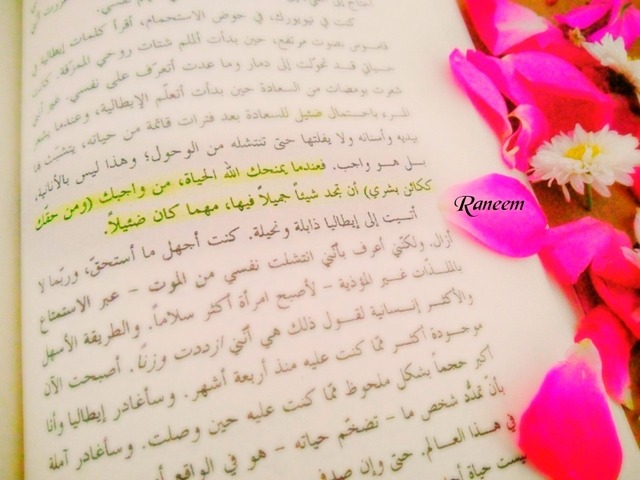 كنت في نيويورك، في حوض الاستحمام، أقرأ كلمات إيطالية في
قاموس بصوت مرتفع، حين بدأت ألملم شتات روحي الممزّقة. كانت
حياتي قد تحوّلت إلى دمار وما عدت أتعرّف على نفسي. غير أنني
شعرت بومضات من السعادة حين بدأت أتعلّم الإيطالية، وعندما يشعر
المرء باحتمال ضئيل للسعادة بعد فترات قاتمة من حياته، يتشبّث بها
بيديه وأسنانه ولا يفلتها حتى تنتشله من الوحول؛ وهذا ليس بالأنانية
بل هو واجب. فعندما يمنحك الله الحياة، من واجبك (ومن حقك
ككائن بشري) أن تجد شيئاً جميلاً فيها، مهما كان ضئيلاً.
أتيت إلى إيطاليا ذابلة ونحيلة. كنت أجهل ما أستحق، وربّما لا
أزال. ولكنّي أعرف بأنّني انتشلت نفسي من الموت - عبر الاستمتاع
بالملذّات غير المؤذية - لأصبح امرأة أكثر سلاماً. والطريقة الأسهل
والأكثر إنسانية لقول ذلك هي أنّني ازددت وزناً. أصبحت الآن
موجودة أكثر ممّا كنت عليه منذ أربعة أشهر. وسأغادر إيطاليا وأنا
أكبر حجماً بشكل ملحوظ ممّا كنت عليه حين وصلت. وسأغادر آملة
بأنّ تمدّد شخص ما - تضخّم حياته - هو في الواقع
في هذا العالم. حتى وإن صدف
ليست حياة
Raneem